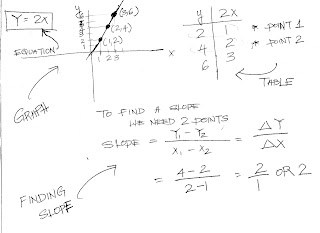 Y = 2x
EQUATION
GRAPH
(3,6)
(2,4)
(1,2)
1 2 3
x
y 2x
2 1 * POINT 1
4 2 * POINT 2
6 3
TABLE
TO FIND A SLOPE
WE NEED 2 POINTS
SLOPE = Y₁ - Y₂ / X₁ - X₂ = ΔY / ΔX
= 4-2 / 2-1 = 2 / 1 OR 2
FINDING
SLOPE